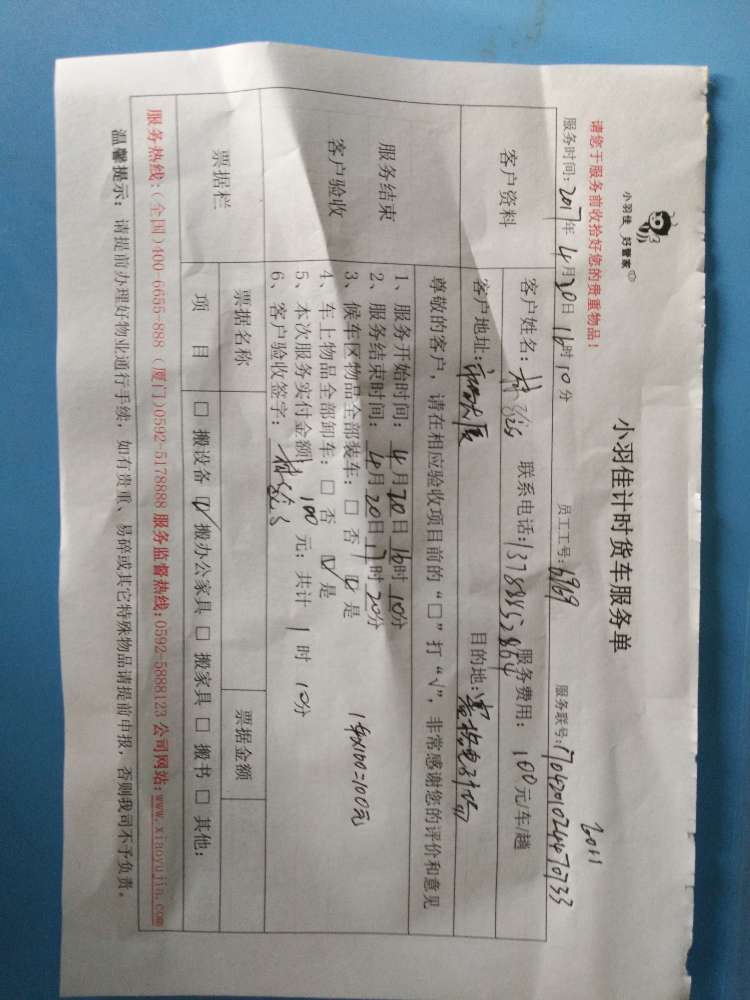 小羽佳 好管家
小羽佳计时货车服务单
请您于服务前收拾好您的贵重物品!
2011
服务时间: 2017年4月20日16时10分 员工工号: 6969 服务联号:
客户资料
客户姓名: 联系电话: 服务费用: 100元/车/趟
客户地址: 大厦 目的地:
尊敬的客户,请在相应验收项目前的“□”打“√”,非常感谢您的评价和意见
服务结束
客户验收
1、服务开始时间: 4月20日16时10分
2、服务结束时间: 4月20日17时20分
3、候车区物品全部装车: □ 否 ☑ 是
4、车上物品全部卸车: □ 否 ☑ 是
5、本次服务实付金额 100 元; 共计 1 时 10分
6、客户验收签字:
1车x100=100元
票据栏
票据名称 票据金额
项 目 □ 搬设备 ☑ 搬办公家具 □ 搬家具 □ 搬书 □ 其他:
服务热线:(全国)400-6655-888 (厦门)0592-5178888 服务监督热线:0592-5888123 公司网站:www.xiaoyujia.com
温馨提示: 请提前办理好物业通行手续,如有贵重、易碎或其它特殊物品请提前申报,否则我司不予负责。